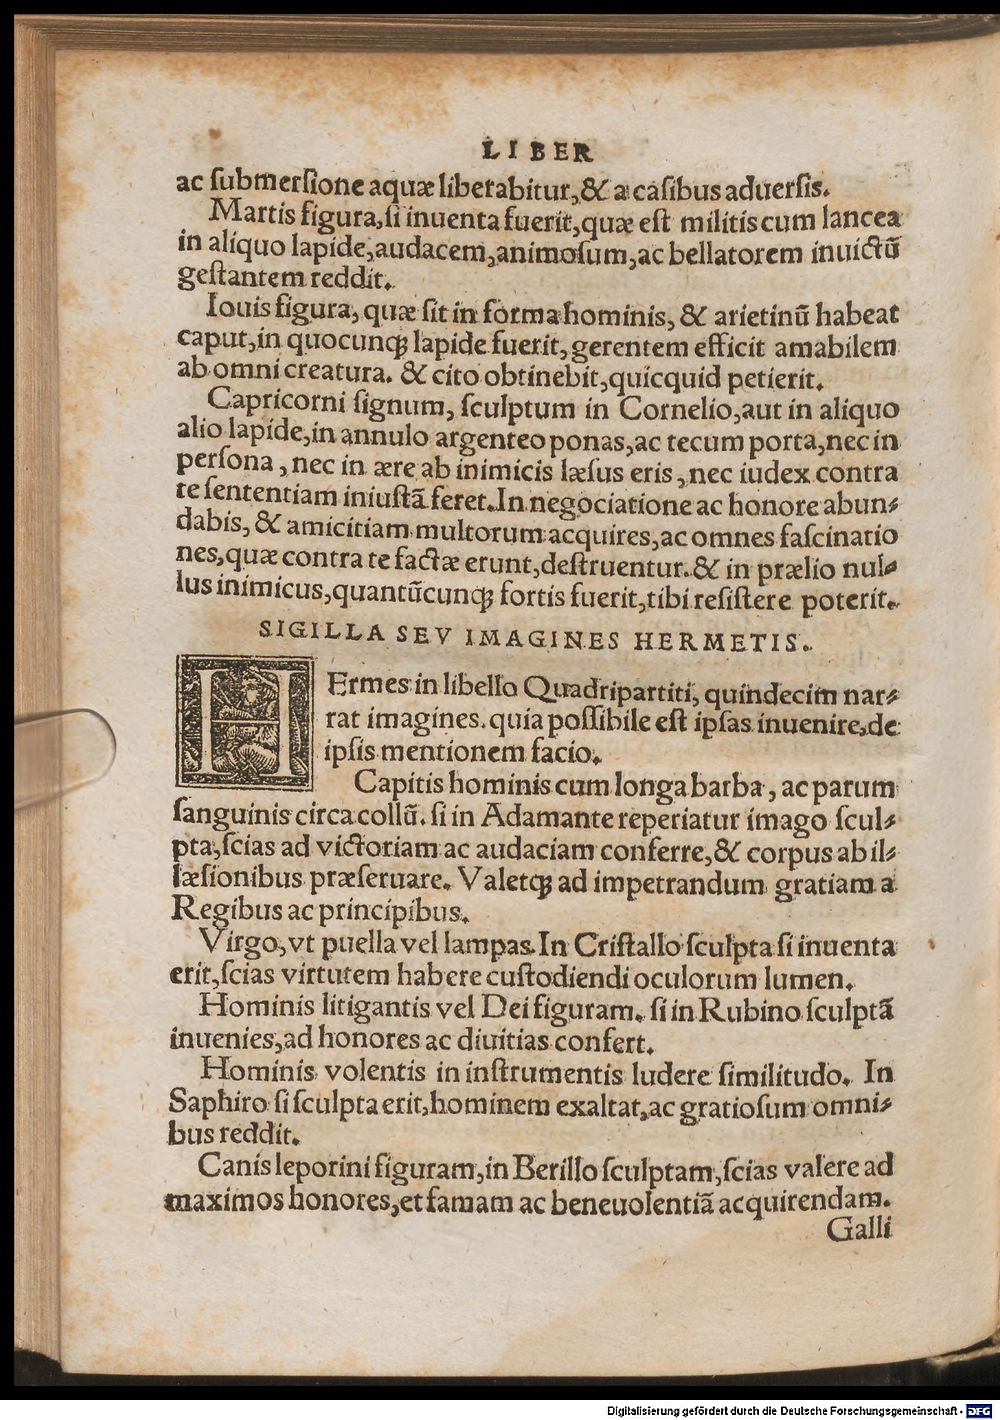 LIBER
ac ſubmerſione aquæ liberabitur, & a caſibus aduerſis.
Martis figura, ſi inuenta fuerit, quæ eſt militis cum lancea
in aliquo lapide, audacem, animoſum, ac bellatorem inuictũ
geſtantem reddit.
Iouis figura, quæ ſit in forma hominis, & arietinũ habeat
caput, in quocunq́ꝫ lapide fuerit, gerentem efficit amabilem
ab omni creatura. & cito obtinebit, quicquid petierit.
Capricorni ſignum, ſculptum in Cornelio, aut in aliquo
alio lapide, in annulo argenteo ponas, ac tecum porta, nec in
perſona, nec in ære ab inimicis læſus eris, nec iudex contra
te ſententiam iniuſtã feret. In negociatione ac honore abun⸗
dabis, & amicitiam multorum acquires, ac omnes faſcinatio
nes, quæ contra te factæ erunt, deſtruentur. & in prælio nul⸗
lus inimicus, quantũcunqꝫ fortis fuerit, tibi reſiſtere poterit.
SIGILLA SEV IMAGINES HERMETIS.
HErmes in libello Quadripartiti, quindecim nar⸗
rat imagines. quia poſſibile eſt ipſas inuenire, de
ipſis mentionem facio.
Capitis hominis cum longa barba, ac parum
ſanguinis circa collũ. ſi in Adamante reperiatur imago ſcul⸗
pta, ſcias ad victoriam ac audaciam conferre, & corpus ab il⸗
læſionibus præſeruare. Valetqꝫ ad impetrandum gratiam a
Regibus ac principibus.
Virgo, vt puella vel lampas. In Criſtallo ſculpta ſi inuenta
erit, ſcias virtutem habere cuſtodiendi oculorum lumen.
Hominis litigantis vel Dei figuram. ſi in Rubino ſculptã
inuenies, ad honores ac diuitias confert.
Hominis volentis in inſtrumentis ludere ſimilitudo. In
Saphiro ſi ſculpta erit, hominem exaltat, ac gratioſum omni⸗
bus reddit.
Canis leporini figuram, in Berillo ſculptam, ſcias valere ad
maximos honores, et famam ac beneuolentiã acquirendam.
Galli
Digitalisierung gefördert durch die Deutsche Forschungsgemeinschaft - DFG